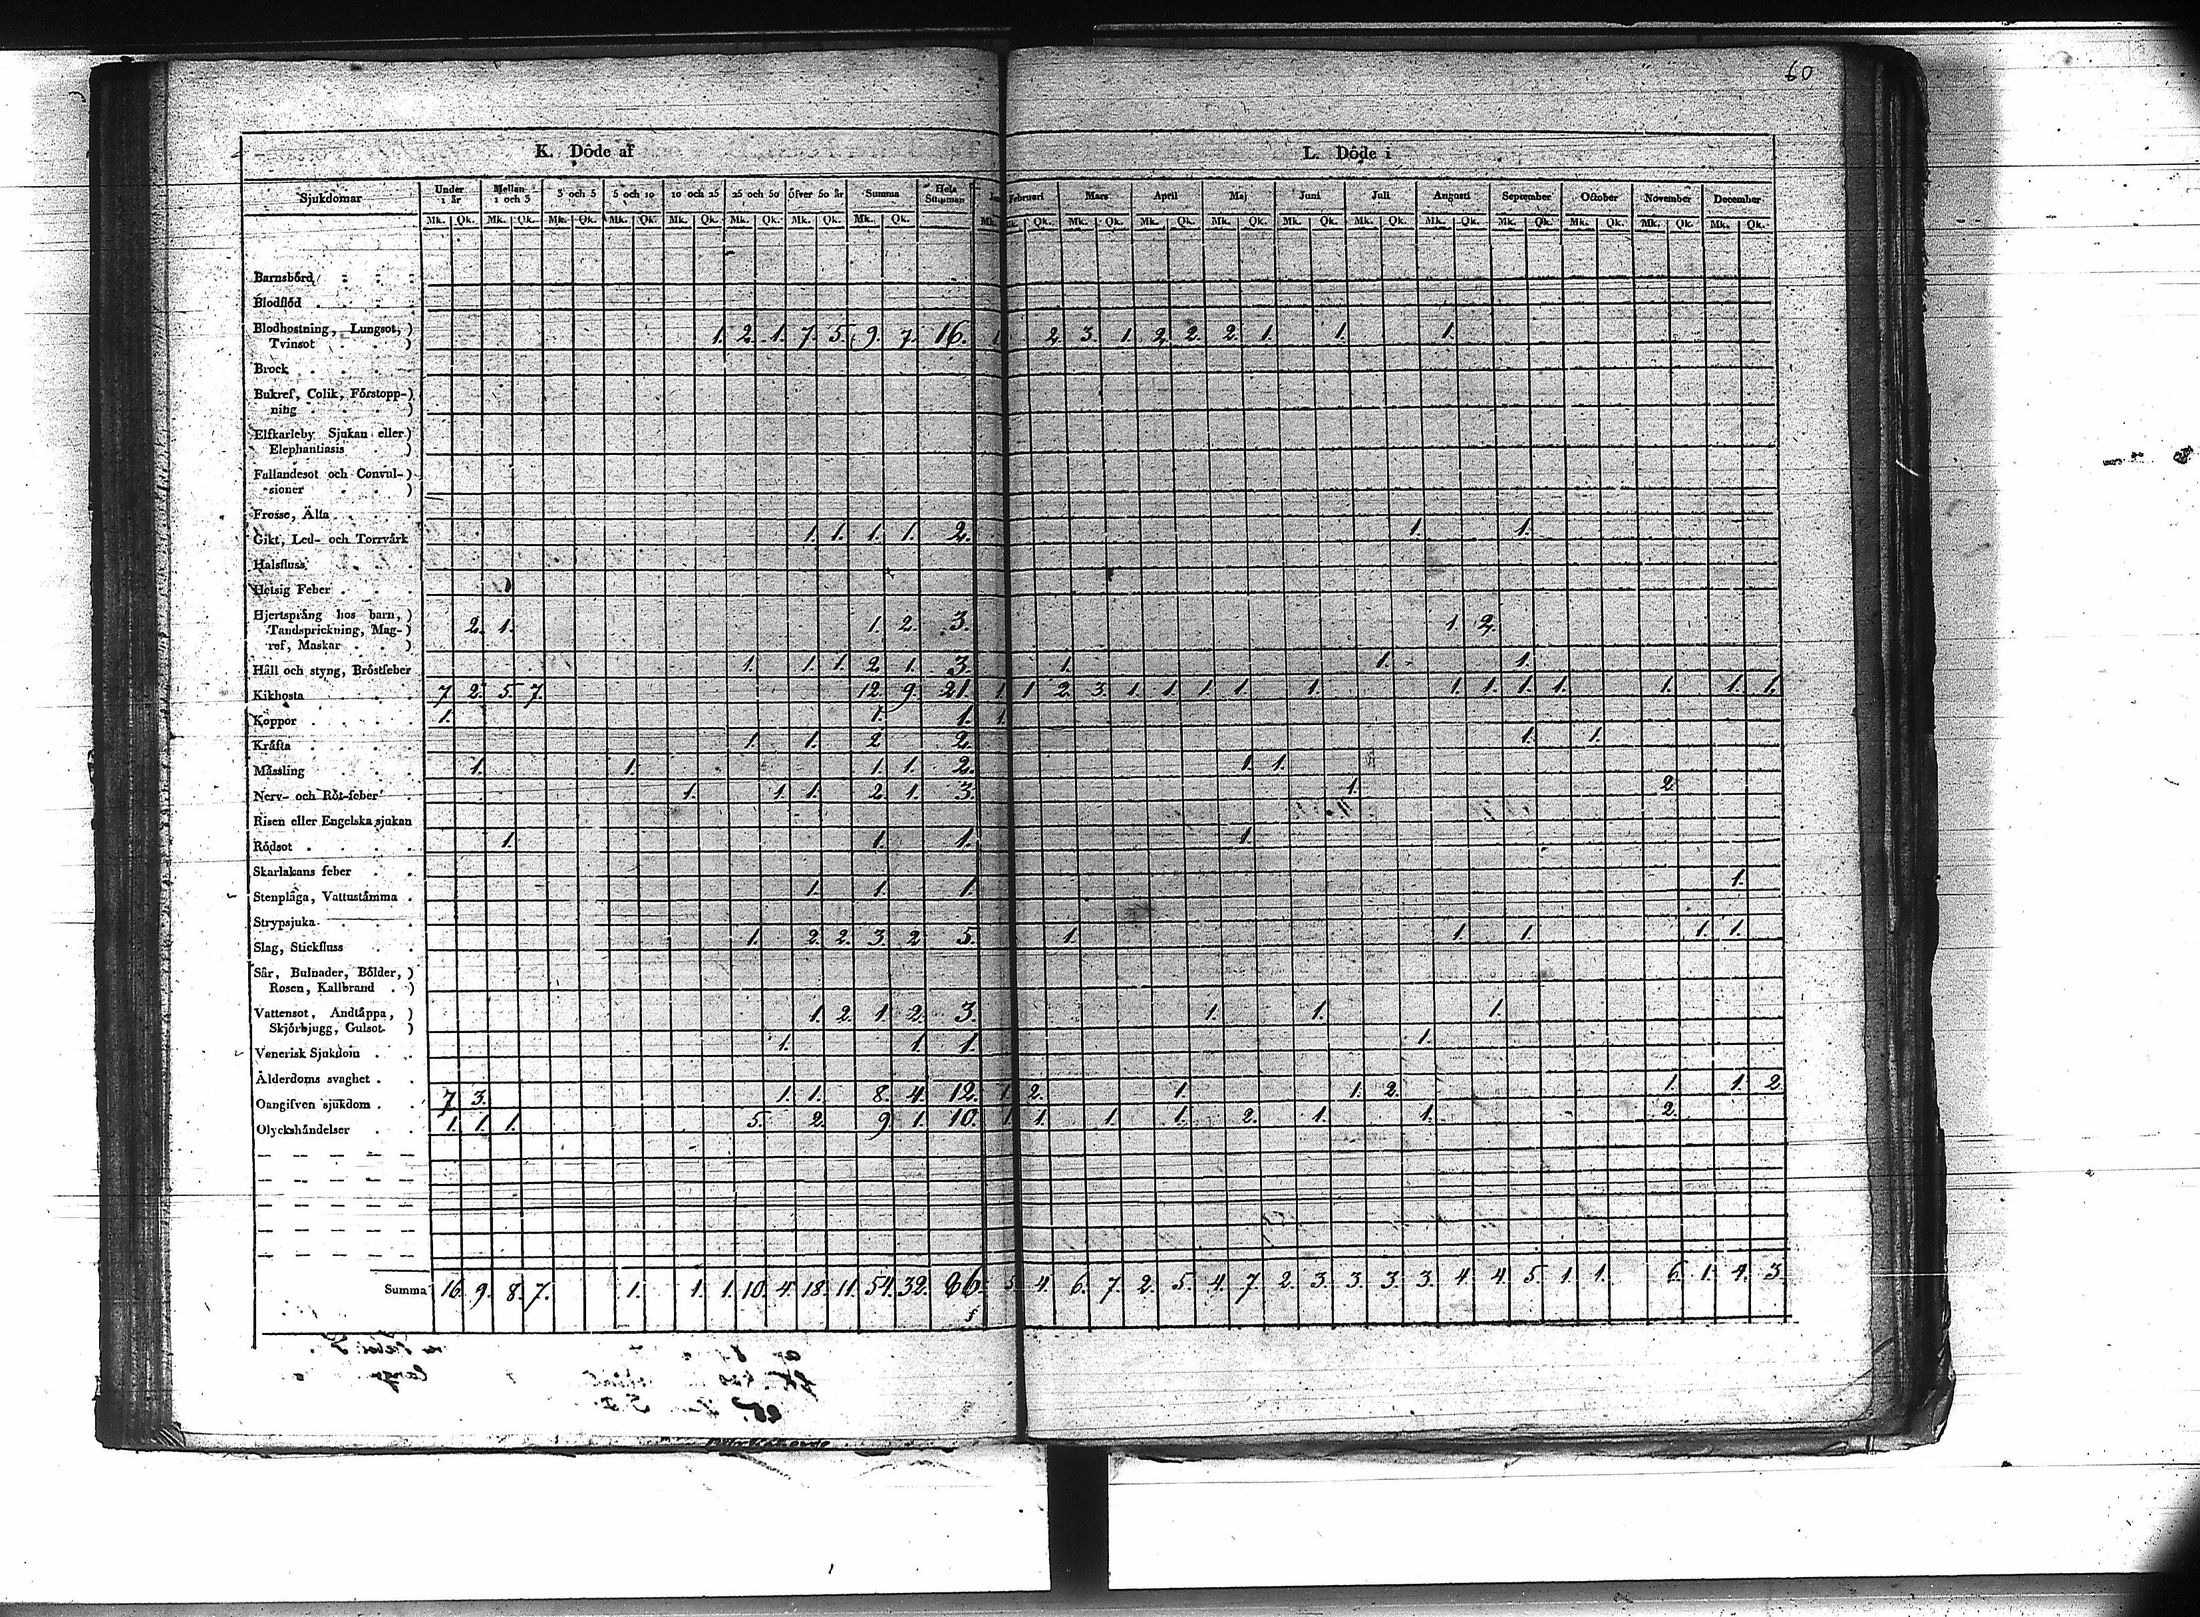 60
K. Döde af
L. Döde i
Sjukdomar Under 1 år Mellan 1 och 3 3 och 5 5 och 10 10 och 25 25 och 50 öfver 50 år Summa Hela Summan
Februari Mars April Maj Juni Juli Augusti September October November December
Mk. Qk. Mk. Qk. Mk. Qk. Mk. Qk. Mk. Qk. Mk. Qk. Mk. Qk. Mk. Qk. Mk.
Qk. Mk. Qk. Mk. Qk. Mk. Qk. Mk. Qk. Mk. Qk. Mk. Qk. Mk. Qk. Mk. Qk. Mk. Qk. Mk. Qk.
Barnsbörd
Blodflöd
Blodhostning, Lungsot,)
Tvinsot ) 1. 2. 1. 7. 5. 9. 7. 16. 1. 2. 3. 1. 2. 2. 2. 1. 1. 1.
Brock
Bukref, Colik, Förstopp-)
ning )
Elfkarleby Sjukan eller)
Elephantiasis )
Fallandesot och Convul-)
sioner )
Frosse, Älta
Gikt, Led- och Torrvärk 1. 1. 1. 1. 2. 1. 1.
Halsfluss
Hetsig Feber
Hjertsprång hos barn,)
Tandsprickning, Mag-) 2. 1. 1. 2. 3. 1. 2.
ref, Maskar )
Håll och styng, Bröstfeber 1. 1. 1. 2. 1. 3. 1. 1. 1.
Kikhosta 7. 2. 5. 7. 12. 9. 21. 1. 1. 2. 3. 1. 1. 1. 1. 1. 1. 1. 1. 1. 1. 1. 1.
Koppor 1. 1. 1. 1.
Kräfta 1. 1. 2. 2. 1. 1.
Mässling 1. 1. 1. 1. 2. 1. 1.
Nerv- och Röt-feber 1. 1. 1. 2. 1. 3. 1. 2.
Risen eller Engelska sjukan
Rödsot 1. 1. 1. 1.
Skarlakans feber
Stenplåga, Vattustämma 1. 1. 1. 1.
Strypsjuka
Slag, Stickfluss 1. 2. 2. 3. 2. 5. 1. 1. 1. 1. 1.
Sår, Bulnader, Bölder,)
Rosen, Kallbrand )
Vattensot, Andtäppa, )
Skjörbjugg, Gulsot ) 1. 2. 1. 2. 3. 1. 1. 1.
Venerisk Sjukdom 1. 1. 1. 1.
Ålderdoms svaghet
Oangifven sjukdom 7. 3. 1. 1. 8. 4. 12. 1. 2. 1. 1. 2. 1. 1. 2.
Olyckshändelser 1. 1. 1. 5. 2. 9. 1. 10. 1. 1. 1. 1. 2. 1. 1. 2.
Summa 16. 9. 8. 7. 1. 1. 1. 10. 4. 18. 11. 54. 32. 86. 5. 4. 6. 7. 2. 5. 4. 7. 2. 3. 3. 3. 3. 4. 4. 5. 1. 1. 6. 1. 4. 3.